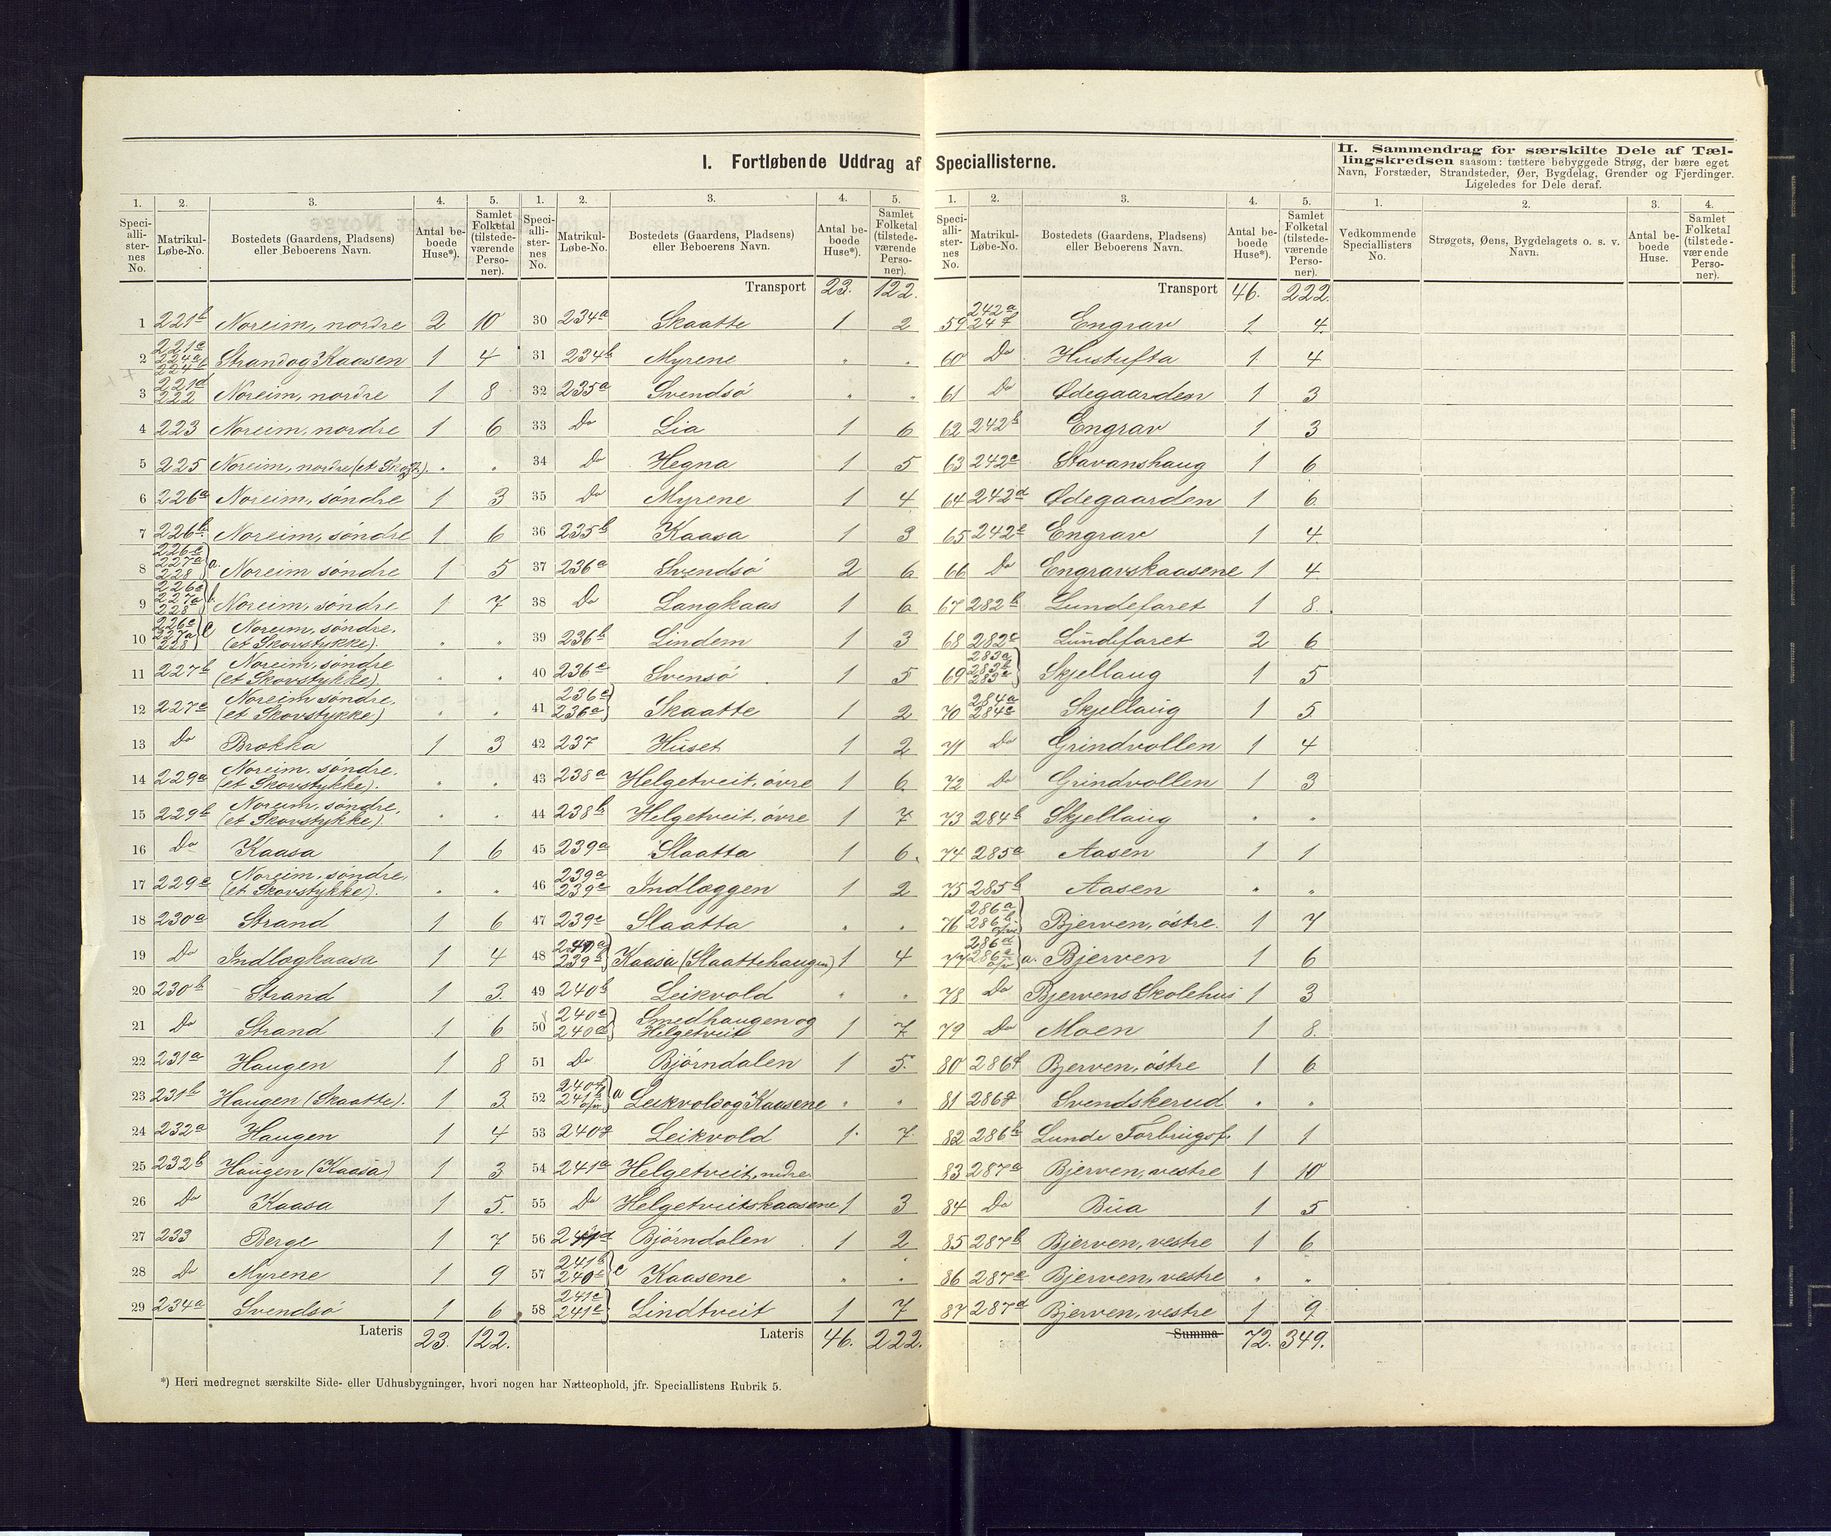 I. Fortløbende Uddrag af Speciallisterne.
II. Sammendrag for særskilte Dele af Tæl-
lingskredsen saasom: tættere bebyggede Strøg, der bære eget
Navn, Forstæder, Strandsteder, Øer, Bygdelag, Grender og Fjerdinger.
Ligeledes for Dele deraf.
1. 2. 3. 4. 5. 1. 2. 3. 4. 5. 1. 2. 3. 4. 5. 1. 2. 3. 4.
Speciallisternes No. Matrikul-Løbe-No. Bostedets (Gaardens, Pladsens) eller Beboerens Navn. Antal beboede Huse*). Samlet Folketal (tilstedeværende Personer).
Speciallisternes No. Matrikul-Løbe-No. Bostedets (Gaardens, Pladsens) eller Beboerens Navn. Antal beboede Huse*). Samlet Folketal (tilstedeværende Personer).
Speciallisternes No. Matrikul-Løbe-No. Bostedets (Gaardens, Pladsens) eller Beboerens Navn. Antal beboede Huse*). Samlet Folketal (tilstedeværende Personer).
Vedkommende Speciallisters No. Strøgets, Øens, Bygdelagets o. s. v. Navn. Antal beboede Huse. Samlet Folketal (tilstedeværende Personer).
1 221b Noreim, nordre 2 10
2 221c 224a 224b Strand og Kaasen 1 4
3 221d 222 Noreim, nordre 1 8
4 223 Noreim, nordre 1 6
5 225 Noreim, nordre (et " "
6 226a Noreim, søndre 1 3
7 226b Noreim, søndre 1 6
8 226c 227a 228 } a. Noreim søndre 1 5
9 226c 227a 228 } b. Noreim, søndre 1 7
10 226c 227a 228 } c Noreim, søndre. (et Skovstykke). " "
11 227b Noreim, søndre (et Skovstykke) " "
12 227c Noreim søndre. (et Skovstykke) " "
13 Do Brokka 1 3
14 229a Noreim, søndre. (et Skovstykke). " "
15 229b Noreim, søndre. (et Skovstykke). " "
16 Do Kaasa 1 6
17 229c Noreim, søndre. (et Skovstykke). " "
18 230a Strand 1 6
19 Do Indlagkaasa 1 4
20 230b Strand 1 3.
21 Do Strand 1 6
22 231a Haugen 1 8
23 231b Haugen (Skaatte). 1 3
24 232a Haugen 1 4
25 232b Haugen (Kaasa) 1 3
26 Do Kaasa 1 5.
27 233 Berge 1 7
28 Do Myrene 1 9
29 234a Svendsø 1 6
Lateris 23. 122.
Transport 23. 122.
30 234a Skaatte 1 2
31 234b Myrene " "
32 235a Svendsø " "
33 Do Lia 1 6
34 Do Hegna 1 5
35 Do Myrene 1 4
36 235b Kaasa 1 3
37 236a Svendsø 2 6
38 Do Langkaas 1 6
39 236b Lindem 1 3
40 236c Svensø 1 5
41 236c 236a } Skaatte 1 2
42 237 Huset 1 2
43 238a Helgetveit, øvre 1 6
44 238b Helgetveit, øvre 1 7
45 239a Slaatta 1 6.
46 239a 239c Indlæggen 1 2
47 239c Slaatta " "
48 240a 239b } Kaasa (Slaattehaugen) 1 4
49 240b Leikvold " "
50 240c 240d } Smedhaugen og Helgetveit 1 7
51 Do Bjørndalen 1 5.
52 240f 241b } a Leikvold og Kaasene " "
53 240g Leikvold 1. 7.
54 241a Helgetveit, nedre
55 Do Helgetveitskaasene 1 3
56 241d Bjørndalen 1 2
57 241b 240e } c Kaasene " "
58 241c 241e } Lindtveit 1 7
Lateris 46. 222.
Transport 46. 222.
59 242a 24f Engrav 1 4
60 Do Hustufta 1 4
61 Do Ødegaarden 1 3
62 242b Engrav 1 3
63 242c Stavanshaug 1 6
64 242d Ødegaarden 1 6
65 242e Engrav 1 4
66 Do Engravskaasene 1 4
67 282b Lundefaret 1 8.
68 282c Lundefaret 2 6
69 283a 283b 283c } Skjellaug 1 5
70 284a 284c Skjellaug 1 5
71 Do Grindvollen 1 4
72 Do Grindvollen 1 3
73 284b Skjellaug " "
74 285a Aasen 1 1
75 285b Aasen " "
76 286a 286b Bjerven, østre. 1 7
77 286d 286e } a. Bjerven 1 6
78 Do Bjervens Skolehus 1 3
79 Do Moen 1 8.
80 286f Bjerven, østre 1 6
81 286g Svendskerud " "
82 286h Lunde Forbrugsf. 1 1
83 287a Bjerven, vestre 1 10
84 Do Bua 1 5
85 287b Bjerven, vestre 1 6
86 287c Bjerven, vestre " "
87 287d Bjerven, vestre 1 9
Summa 72. 349.
*) Heri medregnet særskilte Side- eller Udhusbygninger, hvori nogen har Natteophold, jfr. Speciallistens Rubrik 5.